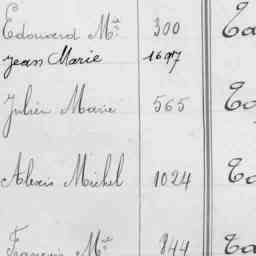 Edouard Mie 300
Jean Marie 1697
Julien Marie 565
Alexis Michel 1024
François Mie 844